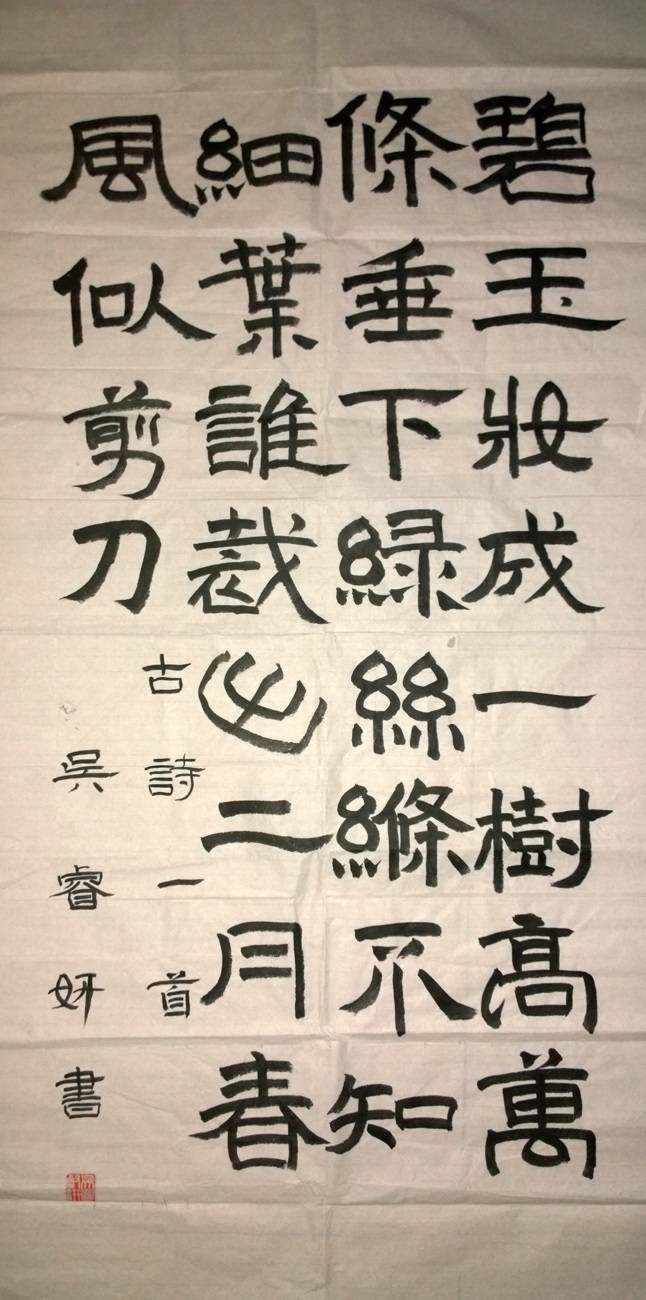 碧玉妝成一樹高萬
條垂下緑絲縧不知
細葉誰裁出二月春
風似剪刀
古詩一首
吳睿妍書